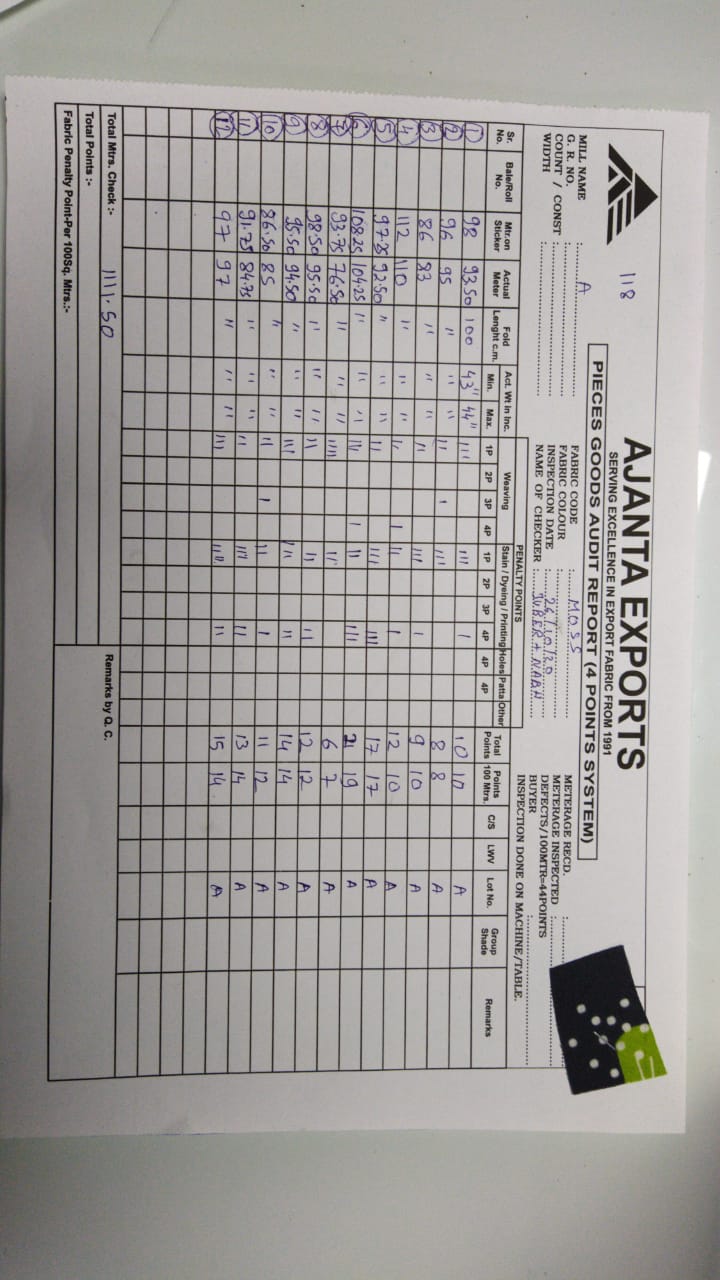 118
AJANTA EXPORTS
SERVING EXCELLENCE IN EXPORT FABRIC FROM 1991
PIECES GOODS AUDIT REPORT (4 POINTS SYSTEM)
MILL NAME : A
G. R. NO. :
COUNT / CONST :
WIDTH :
FABRIC CODE : MOSS
FABRIC COLOUR :
INSPECTION DATE :
NAME OF CHECKER :
METERAGE RECD. :
METERAGE INSPECTED :
DEFECTS/100MTR=44POINTS
BUYER :
INSPECTION DONE ON MACHINE/TABLE.
PENALTY POINTS
Sr. No. Bale/Roll No. Mtr.on Sticker Actual Meter Fold Lenght c.m. Act. Wt in Inc. Weaving Stain / Dyeing / Printing Holes Patta Other Total Points Points 100 Mtrs. C/S LWV Lot No. Group Shade Remarks
Min. Max. 1P 2P 3P 4P 1P 2P 3P 4P 4P 4P
1 98 93.50 100 43" 44" III III I 10 10 A
2 96 95 " " " II I III 8 8 A
3 86 83 " " " II III I 9 10 A
4 112 110 " " " II I II I 12 10 A
5 97.25 92.50 " " " II III III 17 17 A
6 108.25 104.25 " " " III I II III 21 19 A
7 93.75 76.50 " " " IIII II 6 7 A
8 98.50 95.50 " " " II II II 12 12 A
9 95.50 94.50 " " " III III II 14 14 A
10 86.50 85 " " " II I II I 11 12 A
11 91.75 84.75 " " " II III II 13 14 A
12 97 97 " " " III IIII II 15 14 A
Total Mtrs. Check :- 1111.50
Remarks by Q. C.
Total Points :-
Fabric Penalty Point-Per 100Sq. Mtrs.:-